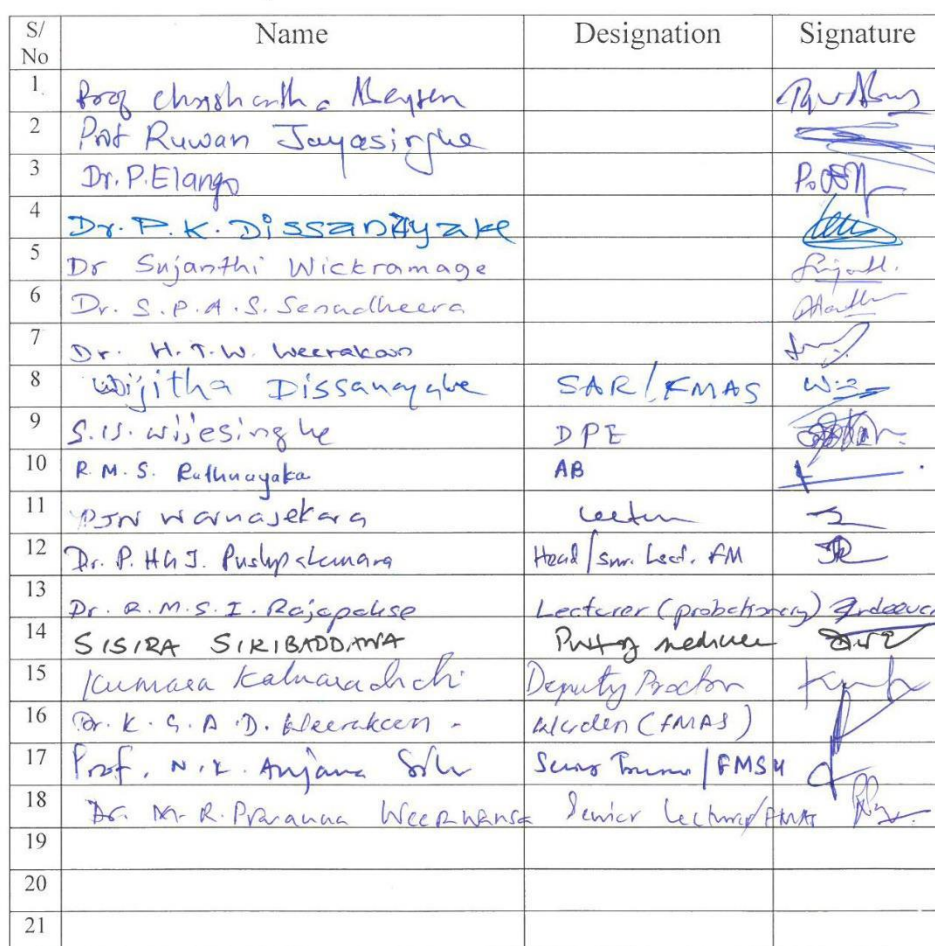 S/ No Name Designation Signature
1. Prof
2 Prof Ruwan Jayasinghe
3 Dr. P. Elango
4 Dr. P. K. Dissanayake
5 Dr Sujanthi Wickramage
6 Dr. S. P. A. S. Senadheera
7 Dr. H. T. W. Weerakoon
8 Wijitha Dissanayake SAR/FMAS
9 S. U. Wijesinghe DPE
10 R. M. S. Rathnayaka AB
11 PJN Warnasekara Lecturer
12 Dr. P. H. G. J. Pushpakumara Head/Snr. Lect. FM
13 Dr. R. M. S. I. Rajapakse Lecturer (probationary)
14 SISIRA SIRIBADDANA Prof of medicine
15 Kumara Kaluarachchi Deputy Proctor
16 Dr. K. G. A. D. Weerakoon - Warden (FMAS)
17 Prof. N. K. Anjana Silva
18 Dr. M. R. Prasanna Weerawansa Senior Lecturer/FMAS
19
20
21